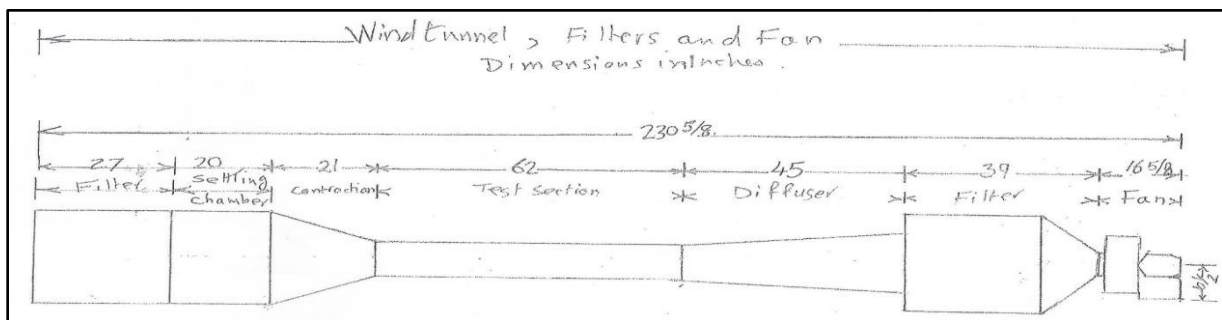 Wind tunnel, Filters and Fan
Dimensions in Inches.
230 5/8
27 20 21 62 45 39 16 5/8
Filter settling chamber contraction Test section Diffuser Filter Fan